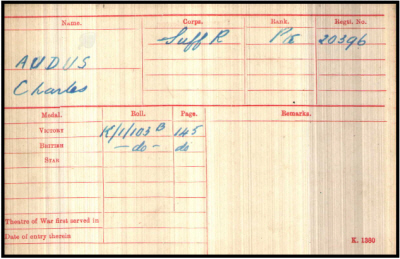 Name. Corps. Rank. Regtl. No.
Suff R Pte 20396
AUDUS
Charles
Medal. Roll. Page. Remarks.
VICTORY K/1/103 B 145
BRITISH —do— do
STAR
Theatre of War first served in
Date of entry therein
K. 1380